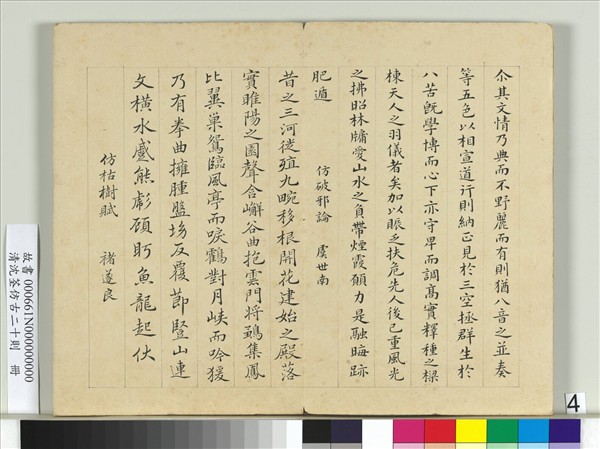 尒其文情乃典而不野麗而有則猶八音之並奏
等五色以相宣道行則納正見於三空拯群生於
八苦既學博而心下亦守卑而調高實釋種之樑
棟天人之羽儀者矣加以賑乏扶危先人後己重風光
之拂照林牖愛山水之負帶煙霞願力是融晦跡
肥遁
仿破邪論 虞世南
昔之三河徙殖九畹移根開花建始之殿落
實睢陽之園聲含嶰谷曲抱雲門將鶵集鳳
比翼巢鴛臨風亭而唳鶴對月峽而吟猨
乃有拳曲擁腫盤坳反覆節豎山連
文橫水蹙熊彪顧盼魚龍起伏
仿枯樹賦 褚遂良
故書000661N000000000
清沈荃仿古二十則 冊
4